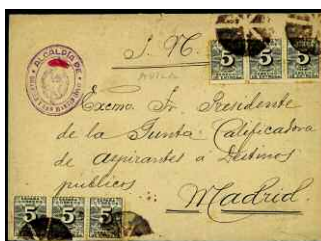 S. N.
AVILA
ALCALDIA DE
5 5 5
Excmo. Sr. Presidente
de la Junta Calificadora
de aspirantes a Destinos
publicos
Madrid.
5 5 5